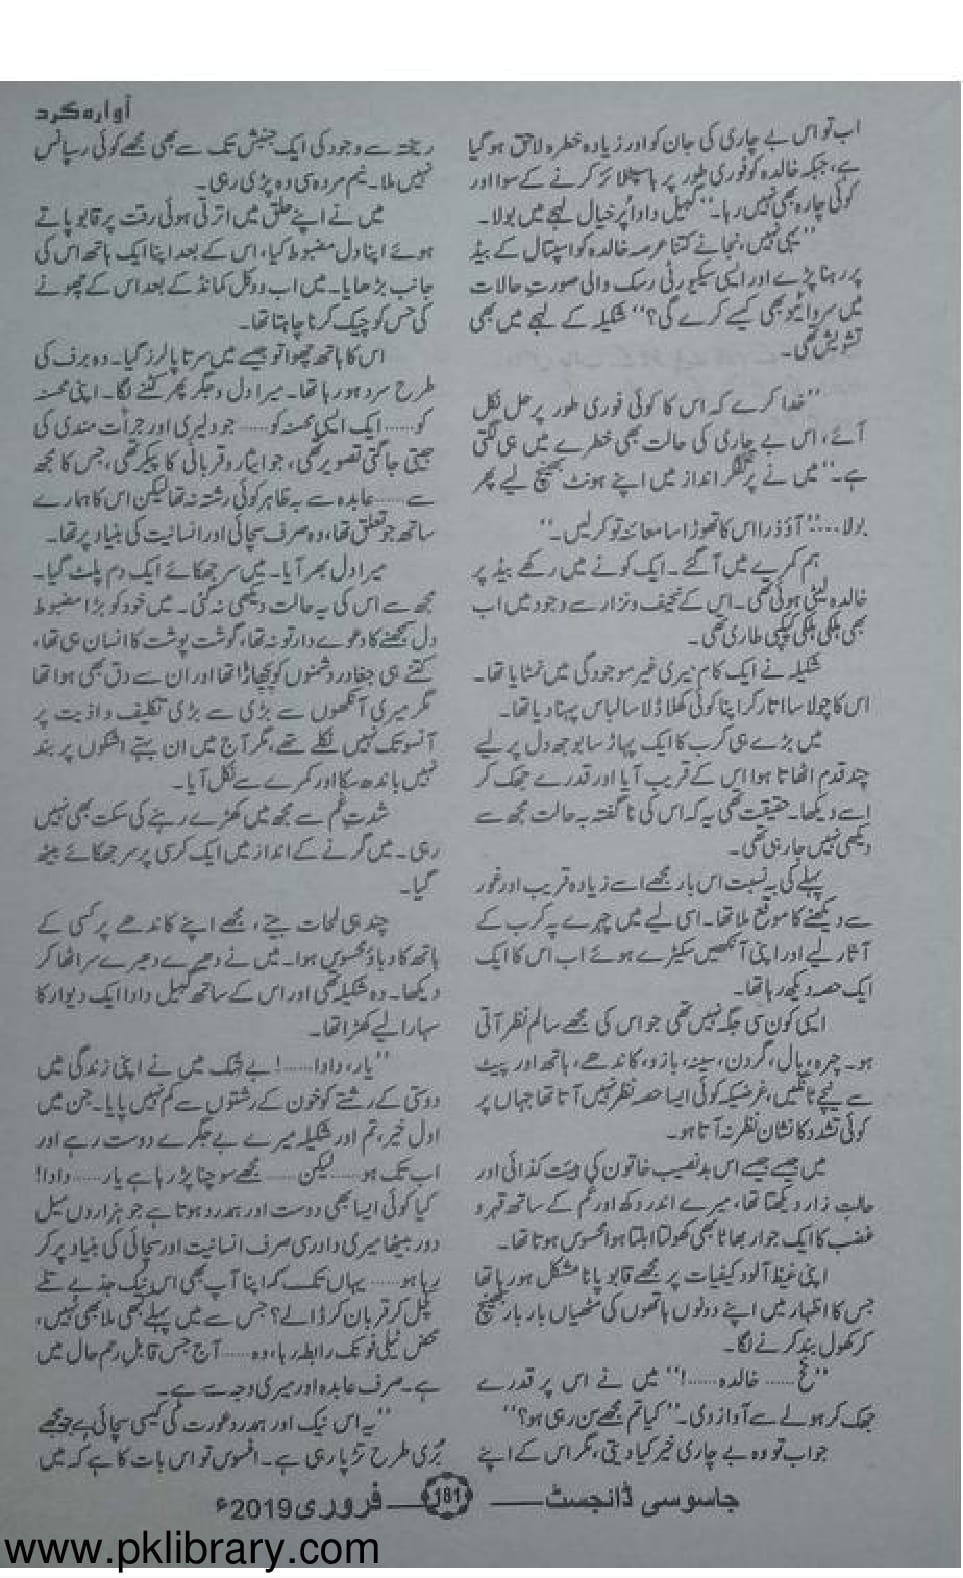 آوارہ گرد
اب تو اس بے چاری کی جان کو اور زیادہ خطرہ لاحق ہو گیا
ہے، جبکہ خالدہ کو فوری طور پر ہاسپٹلائز کرنے کے سوا اور
کوئی چارہ بھی نہیں رہا۔‘‘ کہیل دادا پُرخیال لہجے میں بولا۔
’’یہی نہیں، نجانے کتنا عرصہ خالدہ کو اسپتال کے بیڈ
پر رہنا پڑے اور ایسی سیکیورٹی رسک والی صورتِ حالات
میں سروائیو بھی کیسے کرے گی؟‘‘ شکیلہ کے لہجے میں بھی
تشویش تھی۔
’’خدا کرے کہ اس کا کوئی فوری طور پر حل نکل
آئے، اس بے چاری کی حالت بھی خطرے میں ہی لگتی
ہے۔‘‘ میں نے پُرتفکر انداز میں اپنے ہونٹ بھینچ لیے پھر
بولا.... ’’آؤ ذرا اس کا تھوڑا سا معائنہ تو کر لیں۔‘‘
ہم کمرے میں آ گئے۔ ایک کونے میں رکھے بیڈ پر
خالدہ لیٹی ہوئی تھی۔ اس کے نحیف و نزار سے وجود میں اب
بھی ہلکی ہلکی کپکپی طاری تھی۔
شکیلہ نے ایک کام میری غیر موجودگی میں نمٹایا تھا۔
اس کا چولا سا اتار کر اپنا کوئی کھلا ڈلا سا لباس پہنا دیا تھا۔
میں بڑے ہی کرب کا ایک پہاڑ سا بوجھ دل پر لیے
چند قدم اٹھاتا ہوا اس کے قریب آیا اور قدرے جھک کر
اسے دیکھا۔ حقیقت تھی یہ کہ اس کی ناگفتہ بہ حالت مجھ سے
دیکھی نہیں جا رہی تھی۔
پہلے کی بہ نسبت اس بار مجھے اسے زیادہ قریب اور غور
سے دیکھنے کا موقع ملا تھا۔ اسی لیے میں چہرے پہ کرب کے
آثار لیے اور اپنی آنکھیں سکیڑے ہوئے اب اس کا ایک
ایک حصہ دیکھ رہا تھا۔
ایسی کون سی جگہ نہیں تھی جو اس کی مجھے سالم نظر آتی
ہو۔ چہرہ، بال، گردن، سینہ، بازو، کاندھے، ہاتھ اور پیٹ
سے نیچے ٹانگیں، غرضیکہ کوئی ایسا حصہ نظر نہیں آتا تھا جہاں پر
کوئی تشدد کا نشان نظر نہ آتا ہو۔
میں جیسے جیسے اس بدنصیب خاتون کی ہیئت کذائی اور
حالتِ زار دیکھتا تھا، میرے اندر دکھ اور غم کے ساتھ قہر و
غضب کا ایک جوار بھاٹا بھی کھولتا ابلتا ہوا محسوس ہوتا تھا۔
اپنی غیظ آلود کیفیات پر مجھے قابو پانا مشکل ہو رہا تھا
جس کا اظہار میں اپنے دونوں ہاتھوں کی مٹھیاں بار بار بھینچ
کر کھول بند کرنے لگا۔
’’خ...... خالدہ......!‘‘ میں نے اس پر قدرے
جھک کر ہولے سے آواز دی۔ ’’کیا تم مجھے سن رہی ہو؟‘‘
جواب تو وہ بے چاری خیر کیا دیتی، مگر اس کے اپنے
ریختہ سے وجود کی ایک جنبش تک سے بھی مجھے کوئی رسپانس
نہیں ملا۔ نیم مردہ سی وہ پڑی رہی۔
میں نے اپنے حلق میں اترتی ہوئی رقت پر قابو پاتے
ہوئے اپنا دل مضبوط کیا، اس کے بعد اپنا ایک ہاتھ اس کی
جانب بڑھایا۔ میں اب ووکل کمانڈ کے بعد اس کے چھونے
کی حس کو چیک کرنا چاہتا تھا۔
اس کا ہاتھ چھوا تو جیسے میں سرتاپا لرز گیا۔ وہ برف کی
طرح سرد ہو رہا تھا۔ میرا دل و جگر پھر کٹنے لگا۔ اپنی محسنہ
کو..... ایک ایسی محسنہ کو..... جو دلیری اور جرأت مندی کی
جیتی جاگتی تصویر تھی، جو ایثار و قربانی کا پیکر تھی، جس کا مجھ
سے..... عابدہ سے بہ ظاہر کوئی رشتہ نہ تھا لیکن اس کا ہمارے
ساتھ جو تعلق تھا، وہ صرف سچائی اور انسانیت کی بنیاد پر تھا۔
میرا دل بھر آیا۔ میں سر جھکائے ایک دم پلٹ گیا۔
مجھ سے اس کی یہ حالت دیکھی نہ گئی۔ میں خود کو بڑا مضبوط
دل سمجھنے کا دعوے دار تو نہ تھا، گوشت پوشت کا انسان ہی تھا،
کتنے ہی جغادر دشمنوں کو پچھاڑا تھا اور ان سے دق بھی ہوا تھا
مگر میری آنکھوں سے بڑی سے بڑی تکلیف و اذیت پر
آنسو تک نہیں نکلے تھے، مگر آج میں ان بہتے اشکوں پر بند
نہیں باندھ سکا اور کمرے سے نکل آیا۔
شدتِ غم سے مجھ میں کھڑے رہنے کی سکت بھی نہیں
رہی۔ میں گرنے کے انداز میں ایک کرسی پر سر جھکائے بیٹھ
گیا۔
چند ہی لمحات بیتے، مجھے اپنے کاندھے پر کسی کے
ہاتھ کا دباؤ محسوس ہوا۔ میں نے دھیرے دھیرے سر اٹھا کر
دیکھا۔ وہ شکیلہ تھی اور اس کے ساتھ کہیل دادا ایک دیوار کا
سہارا لیے کھڑا تھا۔
’’یار، دادا......! بے شک میں نے اپنی زندگی میں
دوستی کے رشتے کو خون کے رشتوں سے کم نہیں پایا۔ جن میں
اول خیر، تم اور شکیلہ میرے بے جگرے دوست رہے اور
اب تک ہو..... لیکن..... مجھے سوچنا پڑ رہا ہے یار..... دادا!
کیا کوئی ایسا بھی دوست اور ہمدرد ہوتا ہے جو ہزاروں میل
دور بیٹھا میری دادرسی صرف انسانیت اور سچائی کی بنیاد پر کر
رہا ہو..... یہاں تک کہ اپنا آپ بھی اس نیک جذبے تلے
کچل کر قربان کر ڈالے؟ جس سے میں پہلے کبھی ملا بھی نہیں،
محض ٹیلی فونک رابطہ رہا، وہ..... آج جس قابلِ رحم حال میں
ہے۔ صرف عابدہ اور میری وجہ سے ہے۔
’’یہ اس نیک اور ہمدرد عورت کی کیسی سچائی ہے جو مجھے
بُری طرح تڑپا رہی ہے۔ افسوس تو اس بات کا ہے کہ میں
جاسوسی ڈائجسٹ 181 فروری 2019ء
www.pklibrary.com